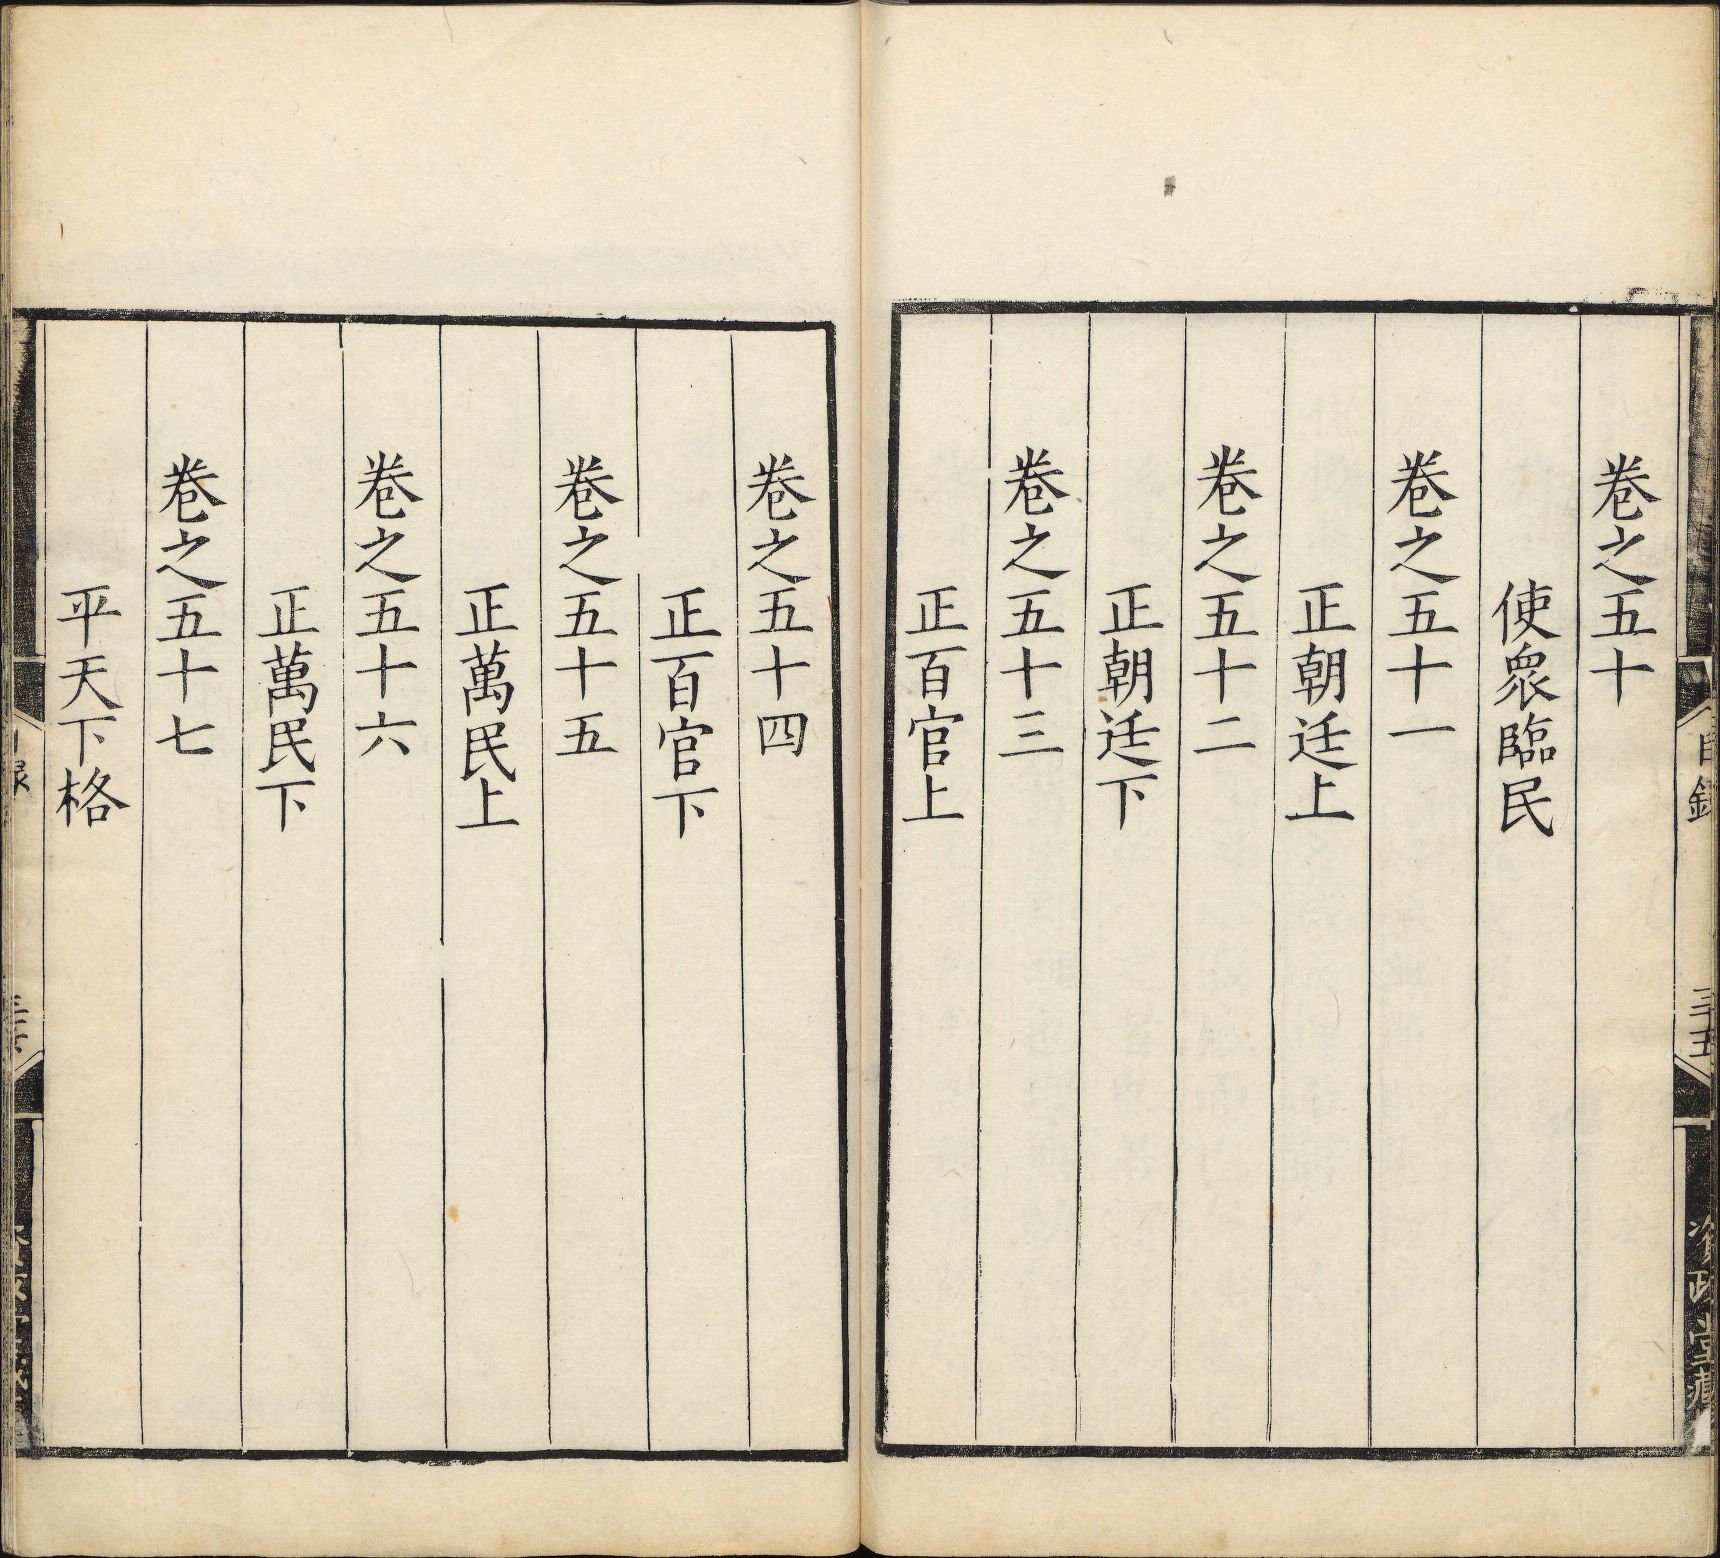 卷之五十
使眾臨民
卷之五十一
正朝廷上
卷之五十二
正朝廷下
卷之五十三
正百官上
卷之五十四
正百官下
卷之五十五
正萬民上
卷之五十六
正萬民下
卷之五十七
平天下格
目錄
三五
資政堂